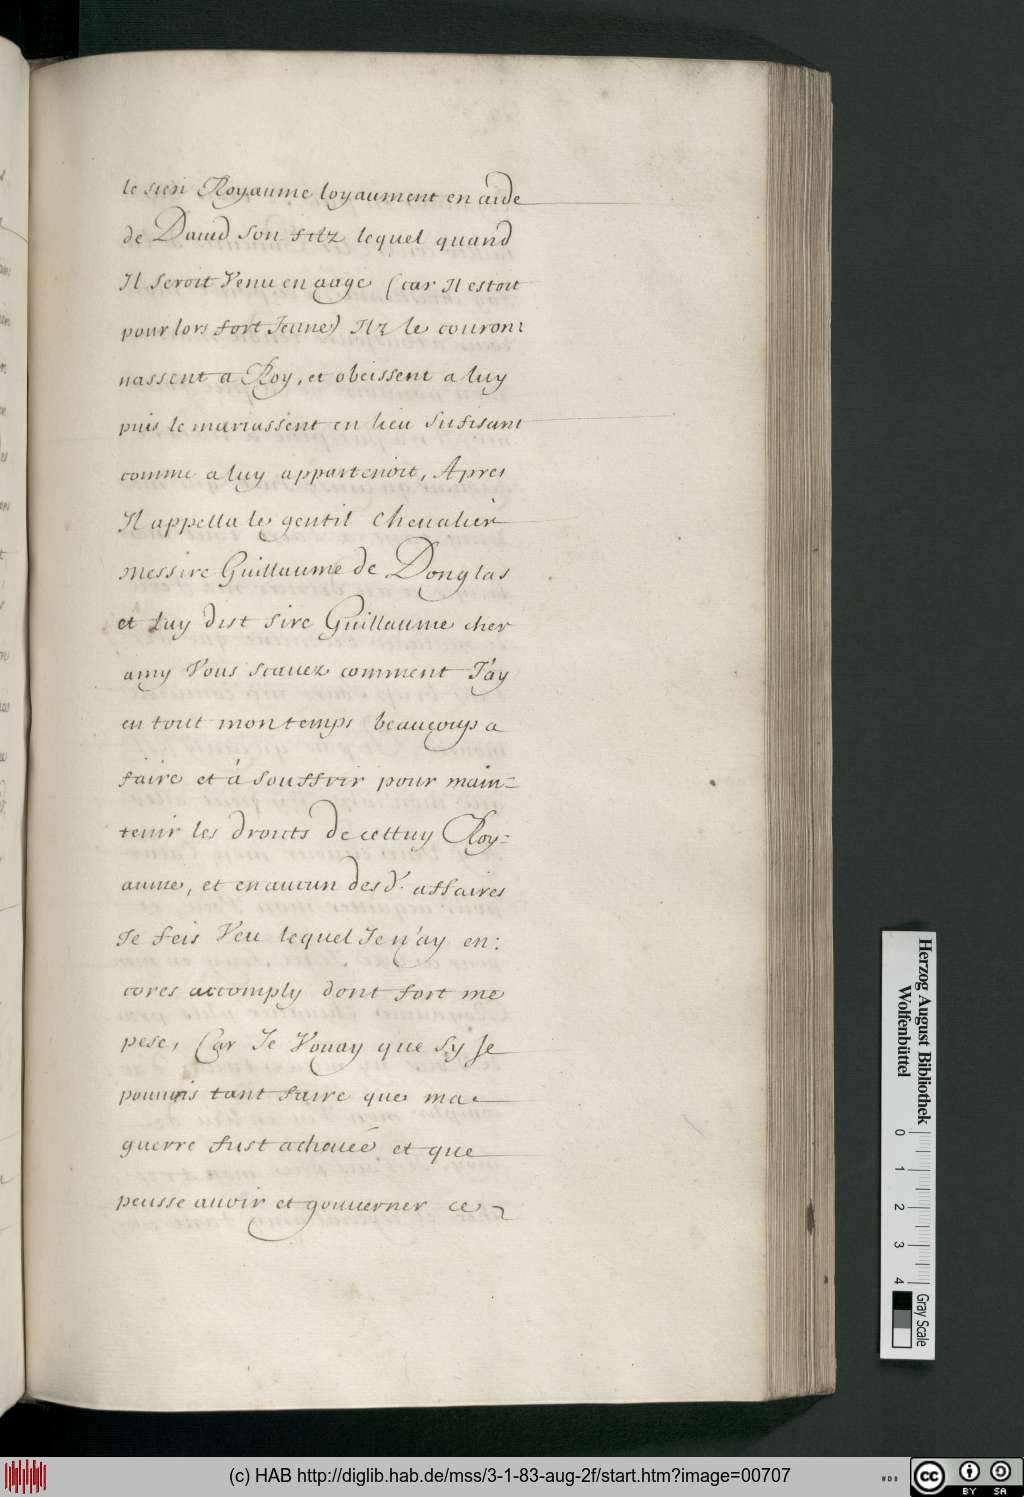 le sien Royaume loyaument en aide
de Dauid son filz lequel quand
Il seroit Venu en aage (car Il estoit
pour lors fort Jeune) Ilz le couron
nassent a Roy, et obeissent a luy
puis le mariassent en lieu sufisant
comme a luy appartenoit, Apres
Il appella le gentil Cheualier
messire Guillaume de Donglas
et Luy dist Sire Guillaume cher
amy Vous scauez comment J'ay
eu tout mon temps beaucoup a
faire et á souffrir pour main=
tenir les droicts de cettuy Roy=
aume, et en aucun des d. affaires
Je feis Veu lequel Je n'ay en:
cores accomply dont fort me
pese, Car Je Vouay que Sy Je
pouuois tant faire que ma
guerre fust acheuée et que
peusse auoir et gouuerner ce
Herzog August Bibliothek
Wolfenbüttel
0 1 2 3 4
Gray Scale
(c) HAB http://diglib.hab.de/mss/3-1-83-aug-2f/start.htm?image=00707
WDB
cc BY SA